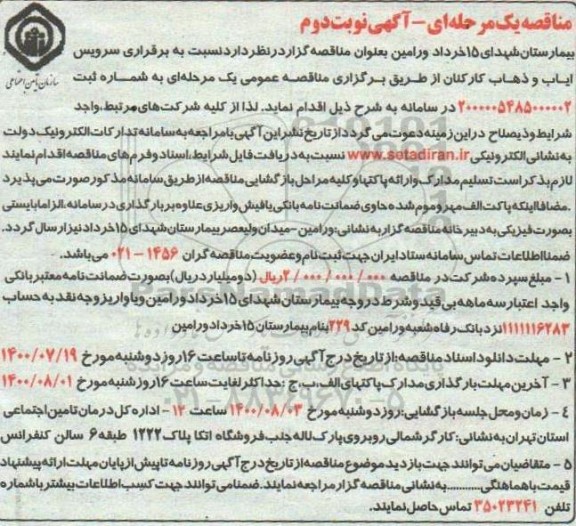 مناقصه یک مرحله‌ای - آگهی نوبت دوم
سازمان تأمین اجتماعی
بیمارستان شهدای ۱۵ خرداد ورامین بعنوان مناقصه گزار در نظر دارد نسبت به برقراری سرویس
ایاب و ذهاب کارکنان از طریق برگزاری مناقصه عمومی یک مرحله‌ای به شماره ثبت
۲۰۰۰۰۰۵۴۸۵۰۰۰۰۰۲ در سامانه به شرح ذیل اقدام نماید. لذا از کلیه شرکت‌های مرتبط، واجد
شرایط و ذیصلاح در این زمینه دعوت می گردد از تاریخ نشر این آگهی با مراجعه به سامانه تدارکات الکترونیک دولت
به نشانی الکترونیکی www.setadiran.ir نسبت به دریافت فایل شرایط، اسناد و فرم های مناقصه اقدام نمایند
لازم بذکر است تسلیم مدارک و ارائه پاکتها و کلیه مراحل بازگشایی مناقصه از طریق سامانه مذکور صورت می پذیرد
.مضافا اینکه پاکت الف مهر و موم شده حاوی ضمانت نامه بانکی یا فیش واریزی علاوه بر بارگذاری در سامانه، الزاما بایستی
بصورت فیزیکی به دبیرخانه مناقصه گزار به نشانی: ورامین - میدان ولیعصر بیمارستان شهدای ۱۵ خرداد نیز ارسال گردد.
ضمنا اطلاعات تماس سامانه ستاد ایران جهت ثبت نام و عضویت مناقصه گران ۱۴۵۶ - ۰۲۱ می باشد.
۱ - مبلغ سپرده شرکت در مناقصه ۲/۰۰۰/۰۰۰/۰۰۰ ریال (دو میلیارد ریال) بصورت ضمانت نامه معتبر بانکی
واجد اعتبار سه ماهه بی قید و شرط در وجه بیمارستان شهدای ۱۵ خرداد ورامین و یا واریز وجه نقد به حساب
۱۱۱۱۱۱۶۲۸۳ نزد بانک رفاه شعبه ورامین کد ۲۲۹ بنام بیمارستان ۱۵ خرداد ورامین
۲ - مهلت دانلود اسناد مناقصه: از تاریخ درج آگهی روزنامه تا ساعت ۱۶ روز دوشنبه مورخ ۱۴۰۰/۰۷/۱۹
۳ - آخرین مهلت بارگذاری مدارک پاکتهای الف، ب، ج: حداکثر لغایت ساعت ۱۶ روز شنبه مورخ ۱۴۰۰/۰۸/۰۱
۴ - زمان و محل جلسه بازگشایی: روز دوشنبه مورخ ۱۴۰۰/۰۸/۰۳ ساعت ۱۲ - اداره کل درمان تامین اجتماعی
استان تهران به نشانی: کارگر شمالی روبروی پارک لاله جنب فروشگاه اتکا پلاک ۱۲۲۲ طبقه ۶ سالن کنفرانس
۵ - متقاضیان می توانند جهت بازدید موضوع مناقصه از تاریخ درج آگهی روزنامه تا پیش از پایان مهلت ارائه پیشنهاد
قیمت با هماهنگی............ به نشانی مناقصه گزار مراجعه نمایند. ضمنا می توانند جهت کسب اطلاعات بیشتر با شماره
تلفن ۳۵۰۲۳۲۴۱ تماس حاصل نمایند.
ParsNamadData
پایگاه اطلاع رسانی مناقصه و مزایده
۰۲۱-۸۸۳۴۹۶۷۰-۵